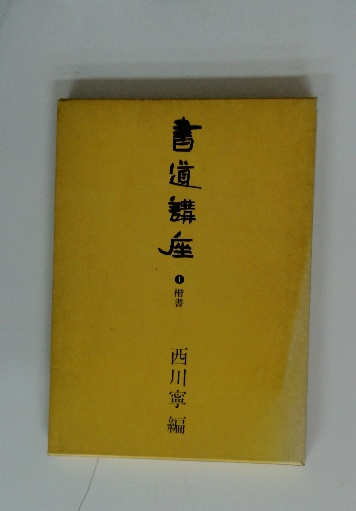 書道講座
❶楷書
西川寧編